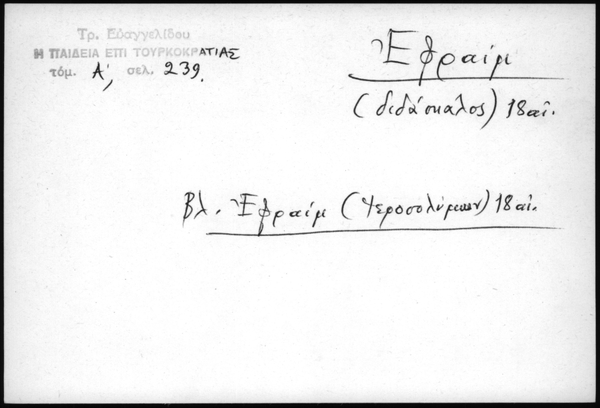 Τρ. Εὐαγγελίδου
Η ΠΑΙΔΕΙΑ ΕΠΙ ΤΟΥΡΚΟΚΡΑΤΙΑΣ
τόμ. Α', σελ. 239.
Ἐφραίμ
(διδάσκαλος) 18 αἰ.
Βλ. Ἐφραίμ (Ἱεροσολύμων) 18 αἰ.